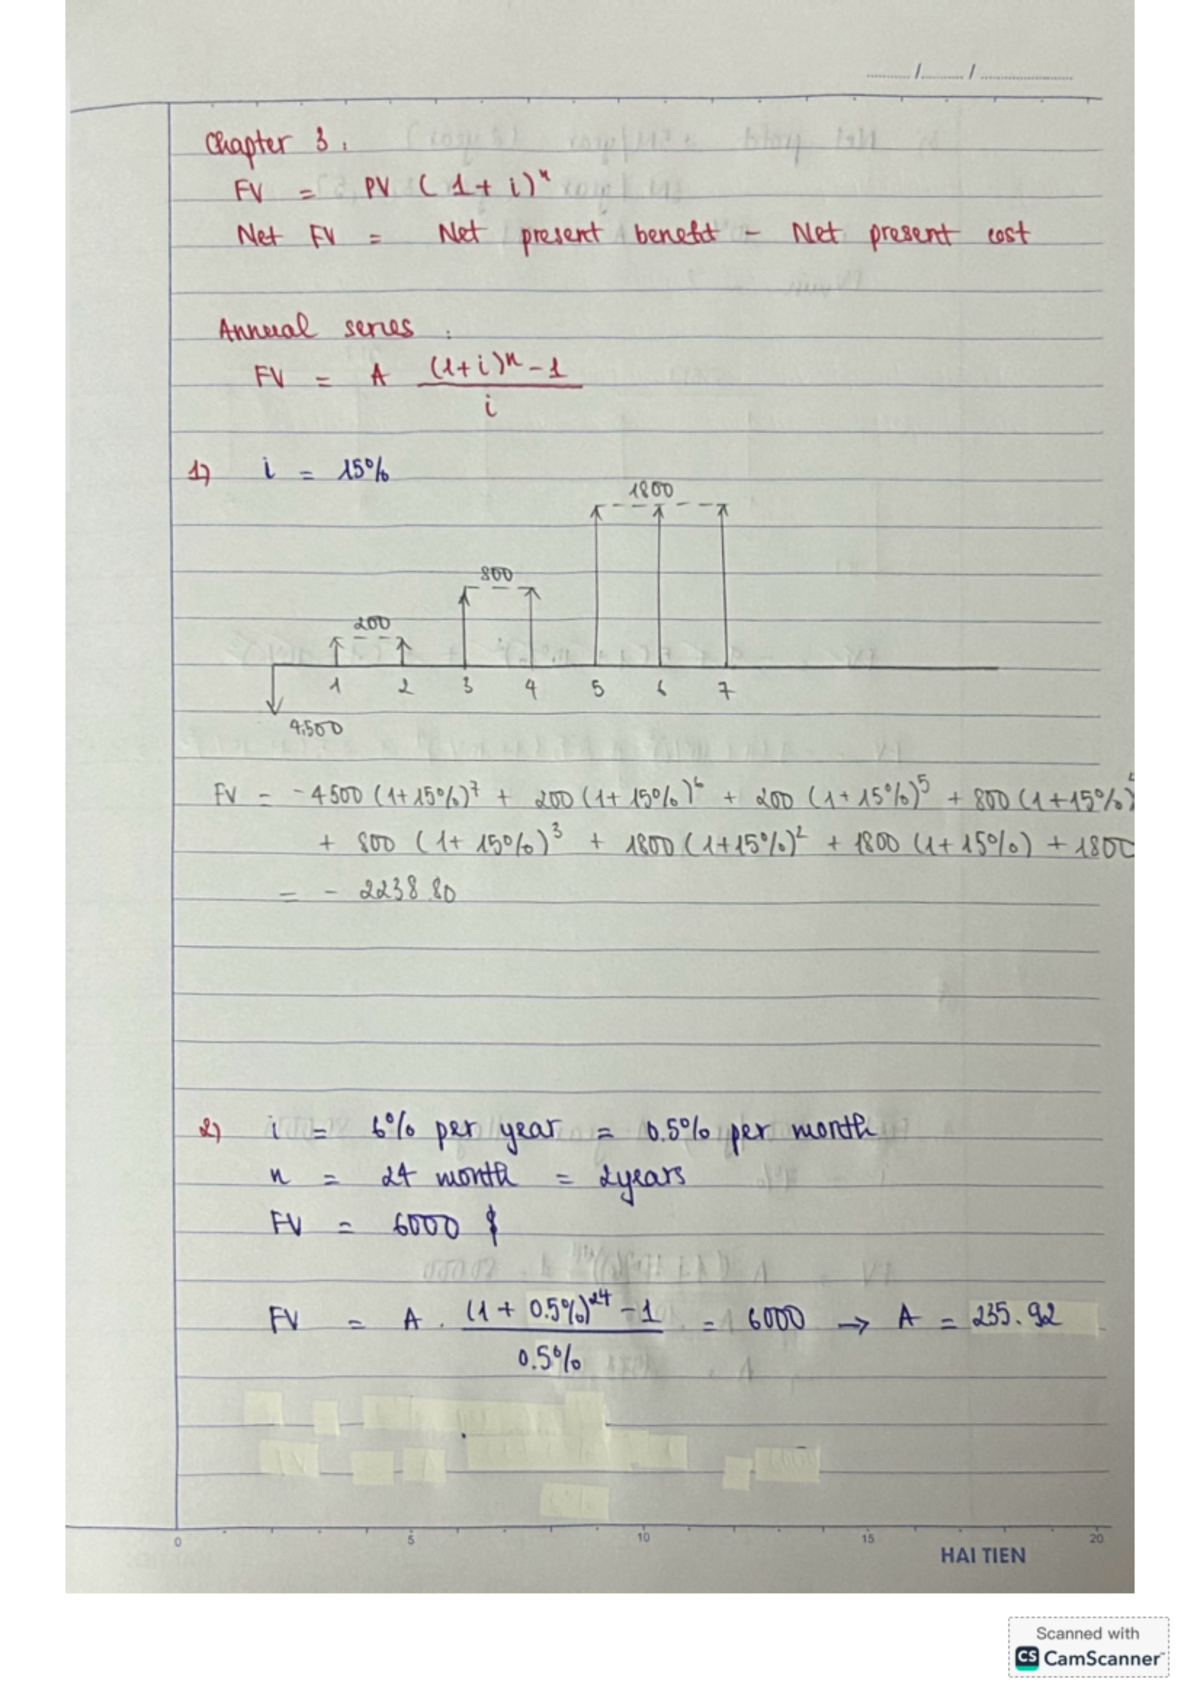 Chapter 3 :
FV = PV ( 1 + i)ⁿ
Net FV = Net present benefit - Net present cost
Annual series :
FV = A (1+i)ⁿ - 1
i
1) i = 15%
1800
800
200
1 2 3 4 5 6 7
4500
FV = - 4500 (1+15%)⁷ + 200 (1+15%)⁶ + 200 (1+15%)⁵ + 800 (1+15%)
+ 800 (1+ 15%)³ + 1800 (1+15%)² + 1800 (1+15%) + 1800
= - 2238.80
2) i = 6% per year = 0.5% per month
n = 24 month = 2years
FV = 6000 $
FV = A . (1 + 0.5%)²⁴ - 1 = 6000 → A = 235.92
0.5%
0 5 10 15 20
HAI TIEN
Scanned with
CS CamScanner